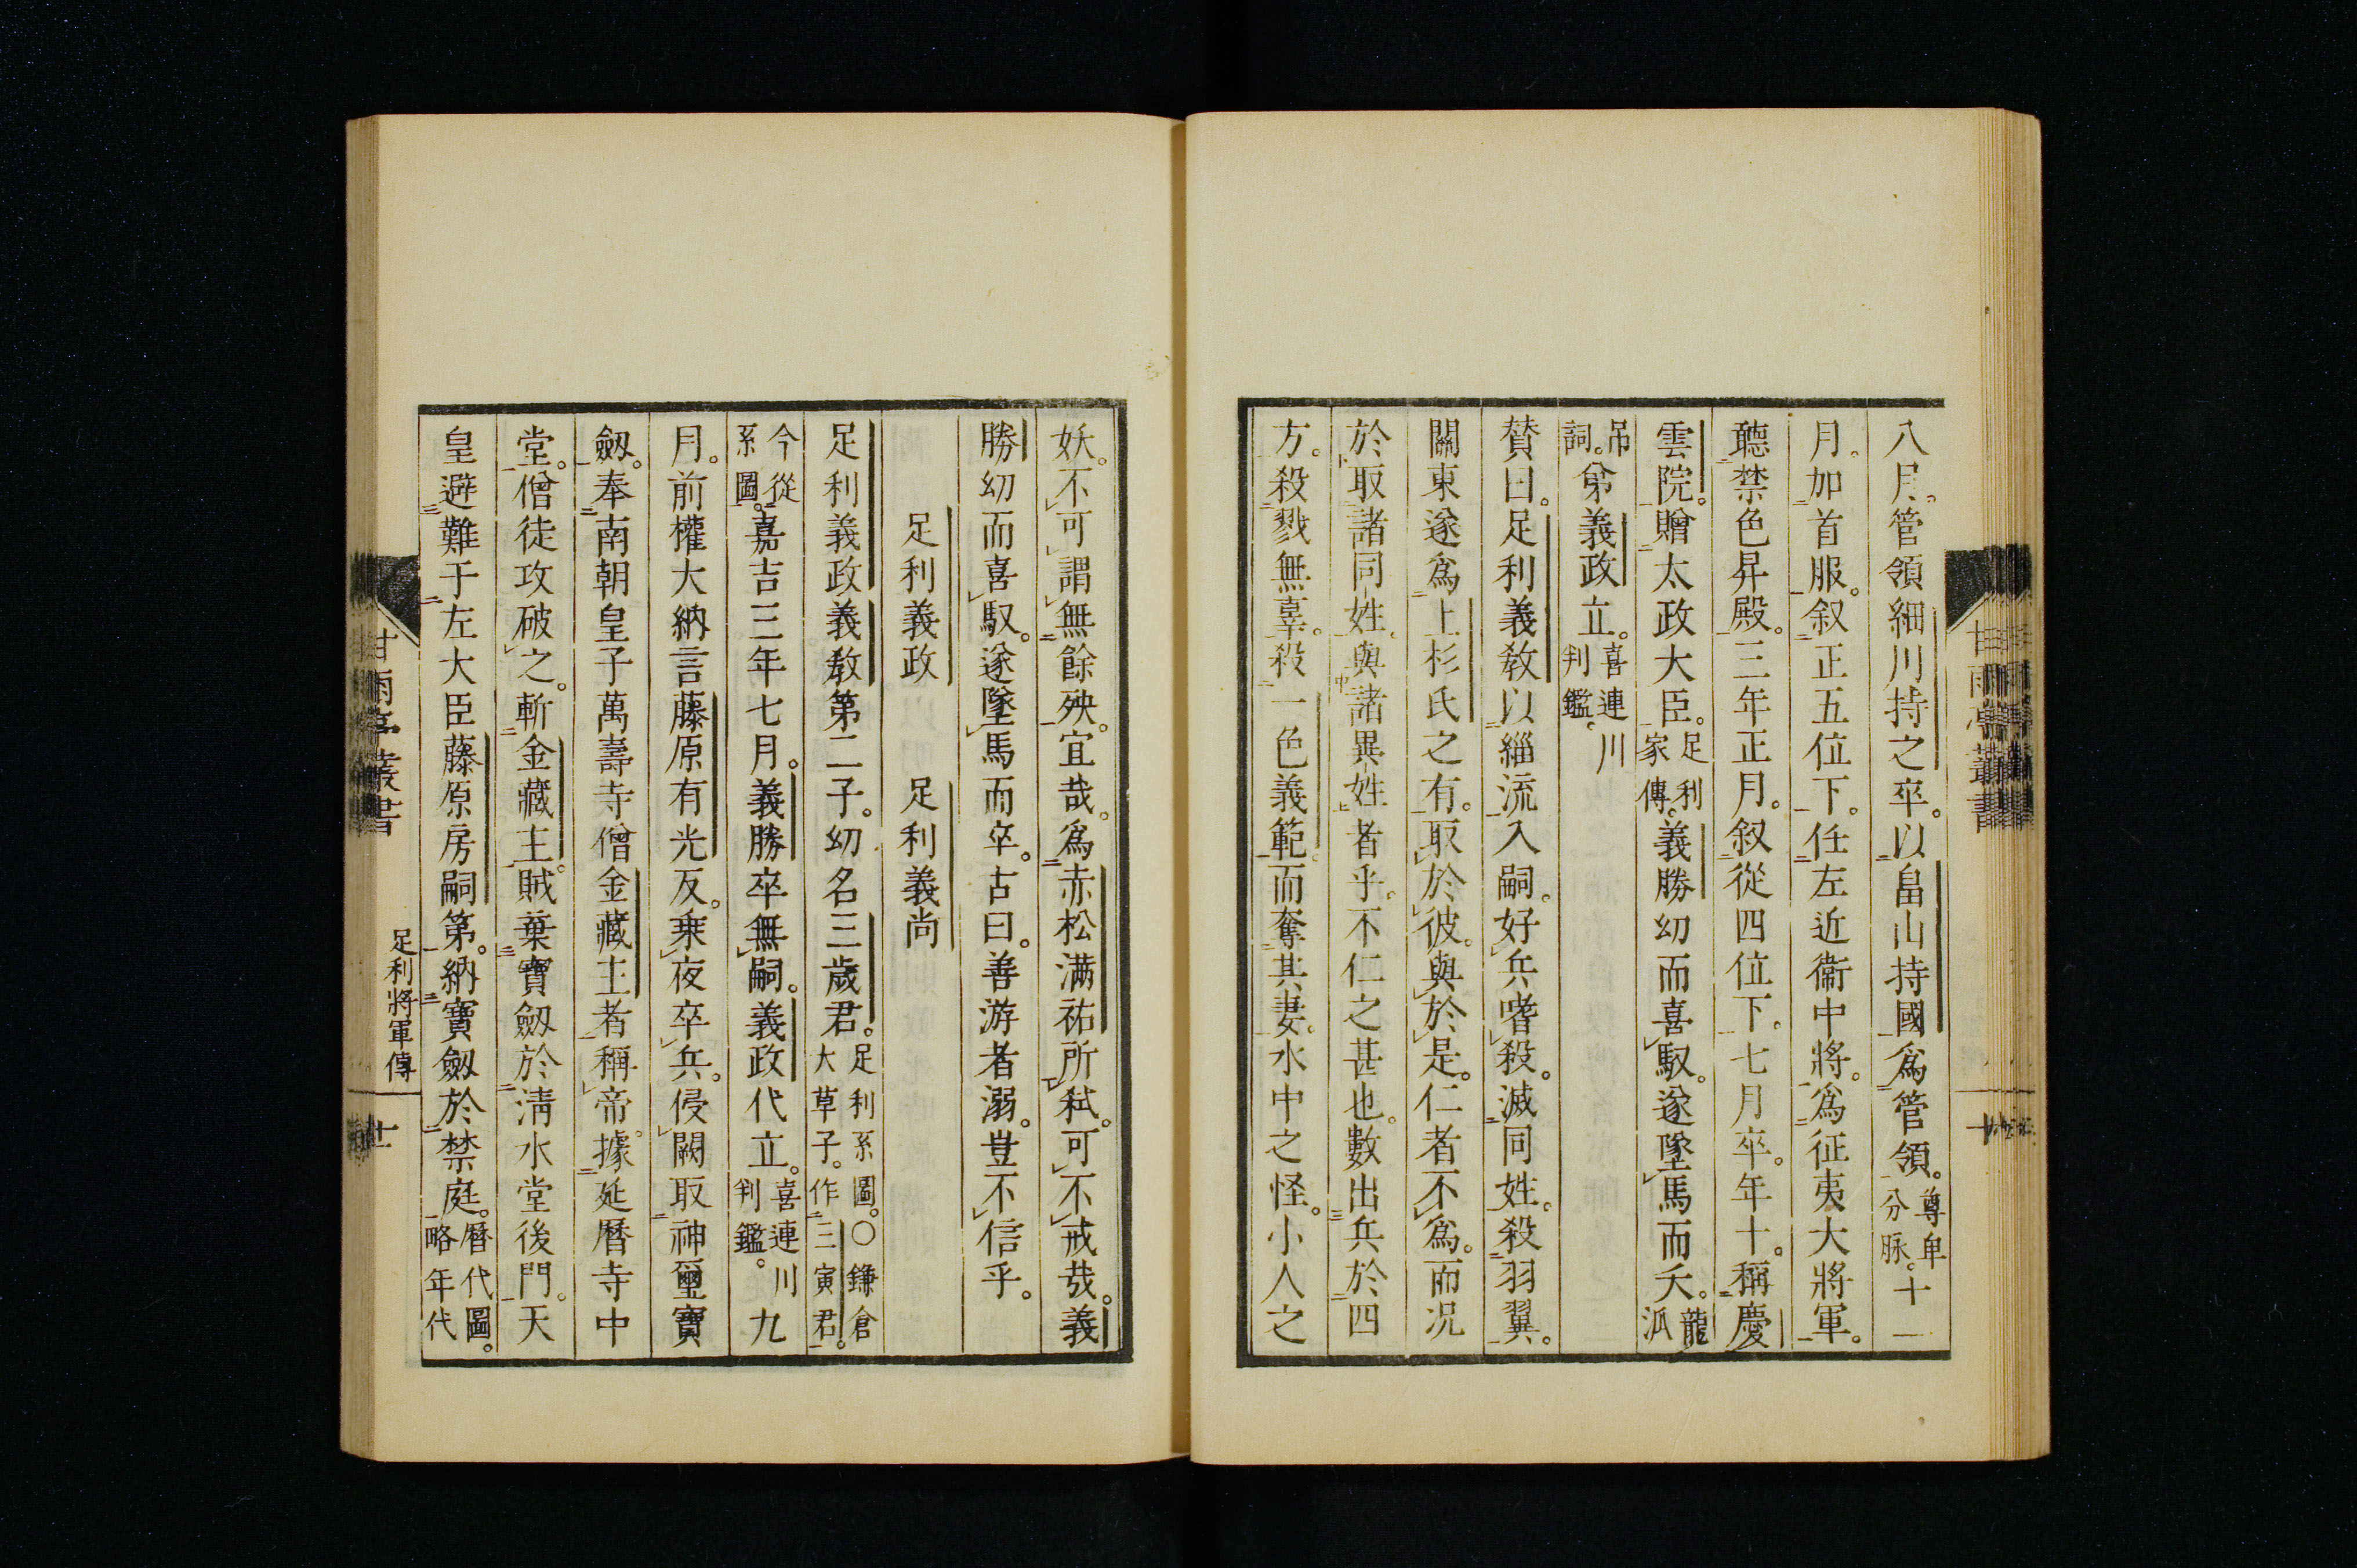 八月。管領細川持之卒。以畠山持國爲管領。尊卑分脉。十一
月。加首服。叙正五位下。任左近衞中將。爲征夷大將軍。
聽禁色昇殿。三年正月。叙從四位下。七月卒。年十。稱慶
雲院。贈太政大臣。足利家傳。義勝幼而喜馭。遂墜馬而夭。龍派
吊詞。弟義政立。喜連川判鑑。
贊曰。足利義教以緇流入嗣。好兵嗜殺。滅同姓。殺羽翼。
關東遂爲上杉氏之有。取於彼。與於是。仁者不爲。而況
於取諸同姓。與諸異姓者乎。不仁之甚也。數出兵於四
方。殺戮無辜。殺一色義範。而奪其妻。水中之怪。小人之
甘雨亭叢書
妖。不可謂無餘殃。宜哉。爲赤松滿祐所弑。可不戒哉。義
勝幼而喜馭。遂墜馬而卒。古曰。善游者溺。豈不信乎。
足利義政　足利義尚
足利義政義教第二子。幼名三歲君。足利系圖。○鎌倉大草子。作三寅君。
今從系圖。嘉吉三年七月。義勝卒無嗣。義政代立。喜連川判鑑。九
月。前權大納言藤原有光反。乗夜卒兵。侵闕取神璽寶
劔。奉南朝皇子萬壽寺僧金藏主者。稱帝。據延暦寺中
堂。僧徒攻破之。斬金藏主。賊棄寶劔於淸水堂後門。天
皇避難于左大臣藤原房嗣第。納寶劔於禁庭。暦代圖。略年代
甘雨亭叢書
足利將軍傳